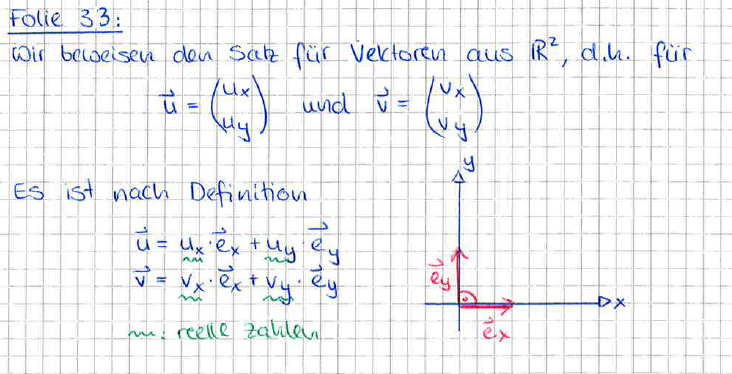 Folie 33:
Wir beweisen den Satz für Vektoren aus ℝ², d.h. für
u⃗ = (uₓ u_y) und v⃗ = (vₓ v_y)
Es ist nach Definition
u⃗ = uₓ · e⃗ₓ + u_y · e⃗_y
v⃗ = vₓ · e⃗ₓ + v_y · e⃗_y
~~~: reelle Zahlen
y
e⃗_y
x
e⃗ₓ